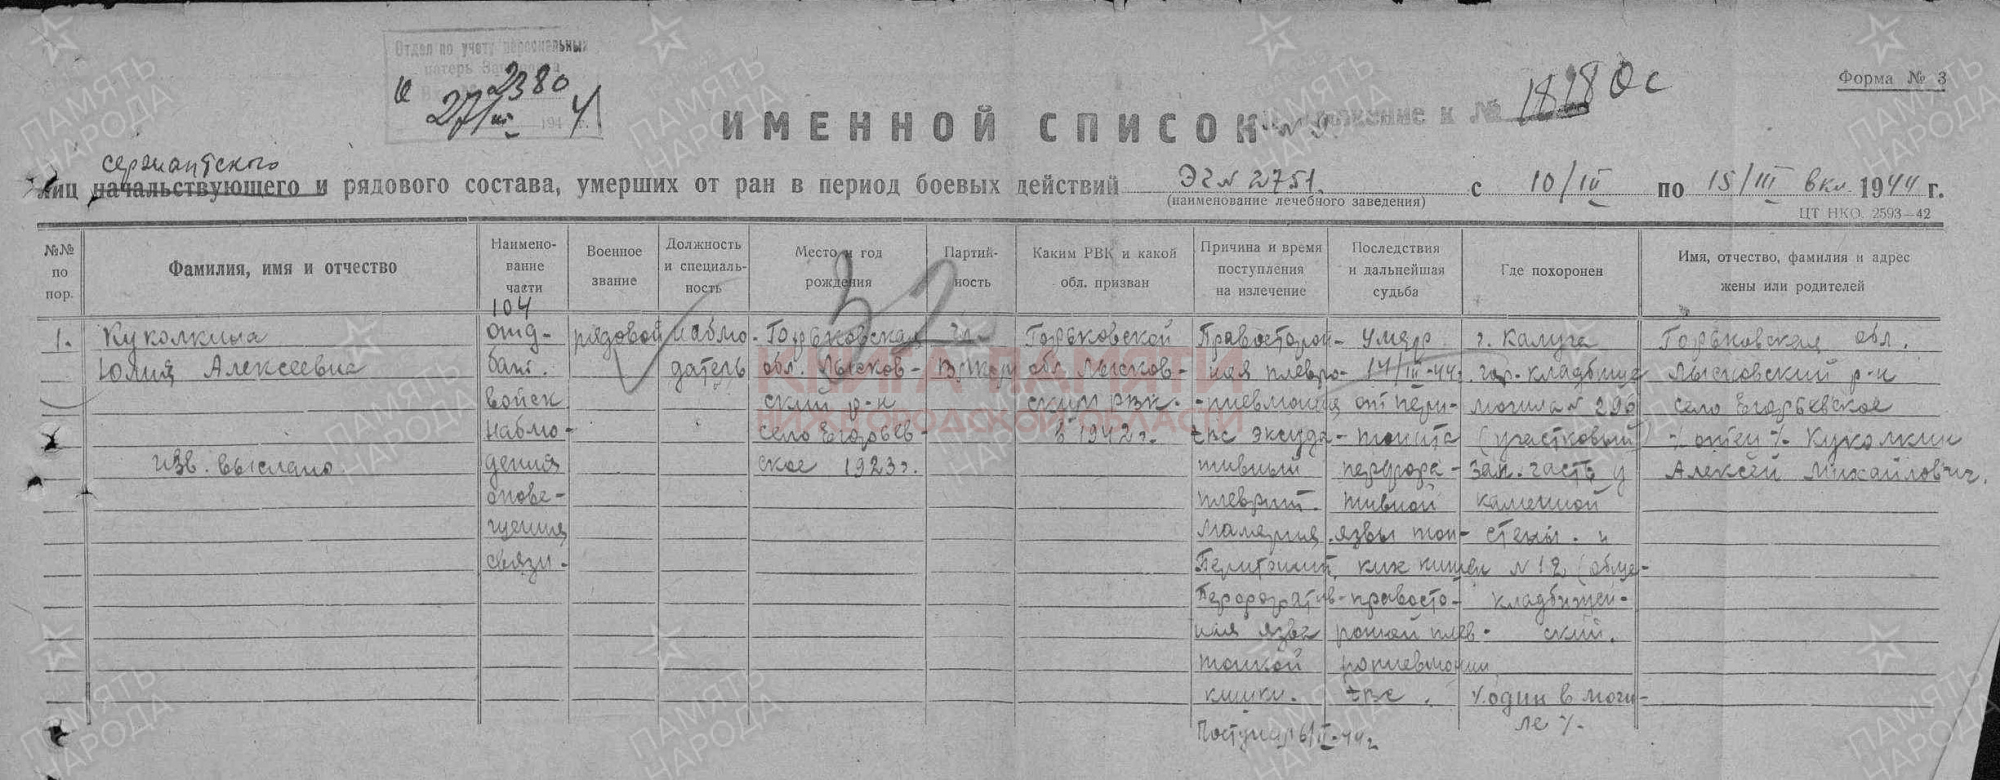 Отдел по учету персональных
потерь
2380
27/III 1944
Форма № 3
ИМЕННОЙ СПИСОК № 9.
Приложение к № 18180с
сержантского
лиц начальствующего и рядового состава, умерших от ран в период боевых действий ЭГ № 2751. с 10/III по 15/III вкл. 1944 г.
(наименование лечебного заведения)
ЦТ НКО. 2593—42
№№ по пор.
Фамилия, имя и отчество
Наименование части
Военное звание
Должность и специальность
Место и год рождения
Партийность
Каким РВК и какой обл. призван
Причина и время поступления на излечение
Последствия и дальнейшая судьба
Где похоронен
Имя, отчество, фамилия и адрес жены или родителей
32
1.
Куколкина
Юлия Алексеевна
Изв. выслано.
104
отд-
бат.
войск
наблю-
дения
опове-
щения
связи.
рядовой
наблю-
датель
Горьковская
обл. Лысков-
ский р-н
село Егорьев-
ское 1923 г.
чл.
ВЛКСМ
Горьковской
обл. Лысков-
ским РВК.
в 1942 г.
Правосторон-
няя плевро-
-пневмония
tbc эксуда-
тивный
плеврит.
Малярия.
Перитонит.
Перфоратив-
ная язва
тонкой
кишки.
Поступил 6/II-44г
Умер
14/III-44г.
от пери-
тонита
перфора-
тивной
язвы тон-
ких кишек
правосто-
ронней плев-
ропневмонии
tbc.
г. Калуга
гор. кладбище
могила № 296
(участковый)
зап. часть у
каменной
стены. и
№ 12 (обще-
кладбищен-
ский.
/. один в моги-
ле /.
Горьковская обл.
Лысковский р-н
село Егорьевское
/. отец /. Куколкин
Алексей Михайлович.
КНИГА ПАМЯТИ
НИЖЕГОРОДСКОЙ ОБЛАСТИ
ПАМЯТЬ НАРОДА